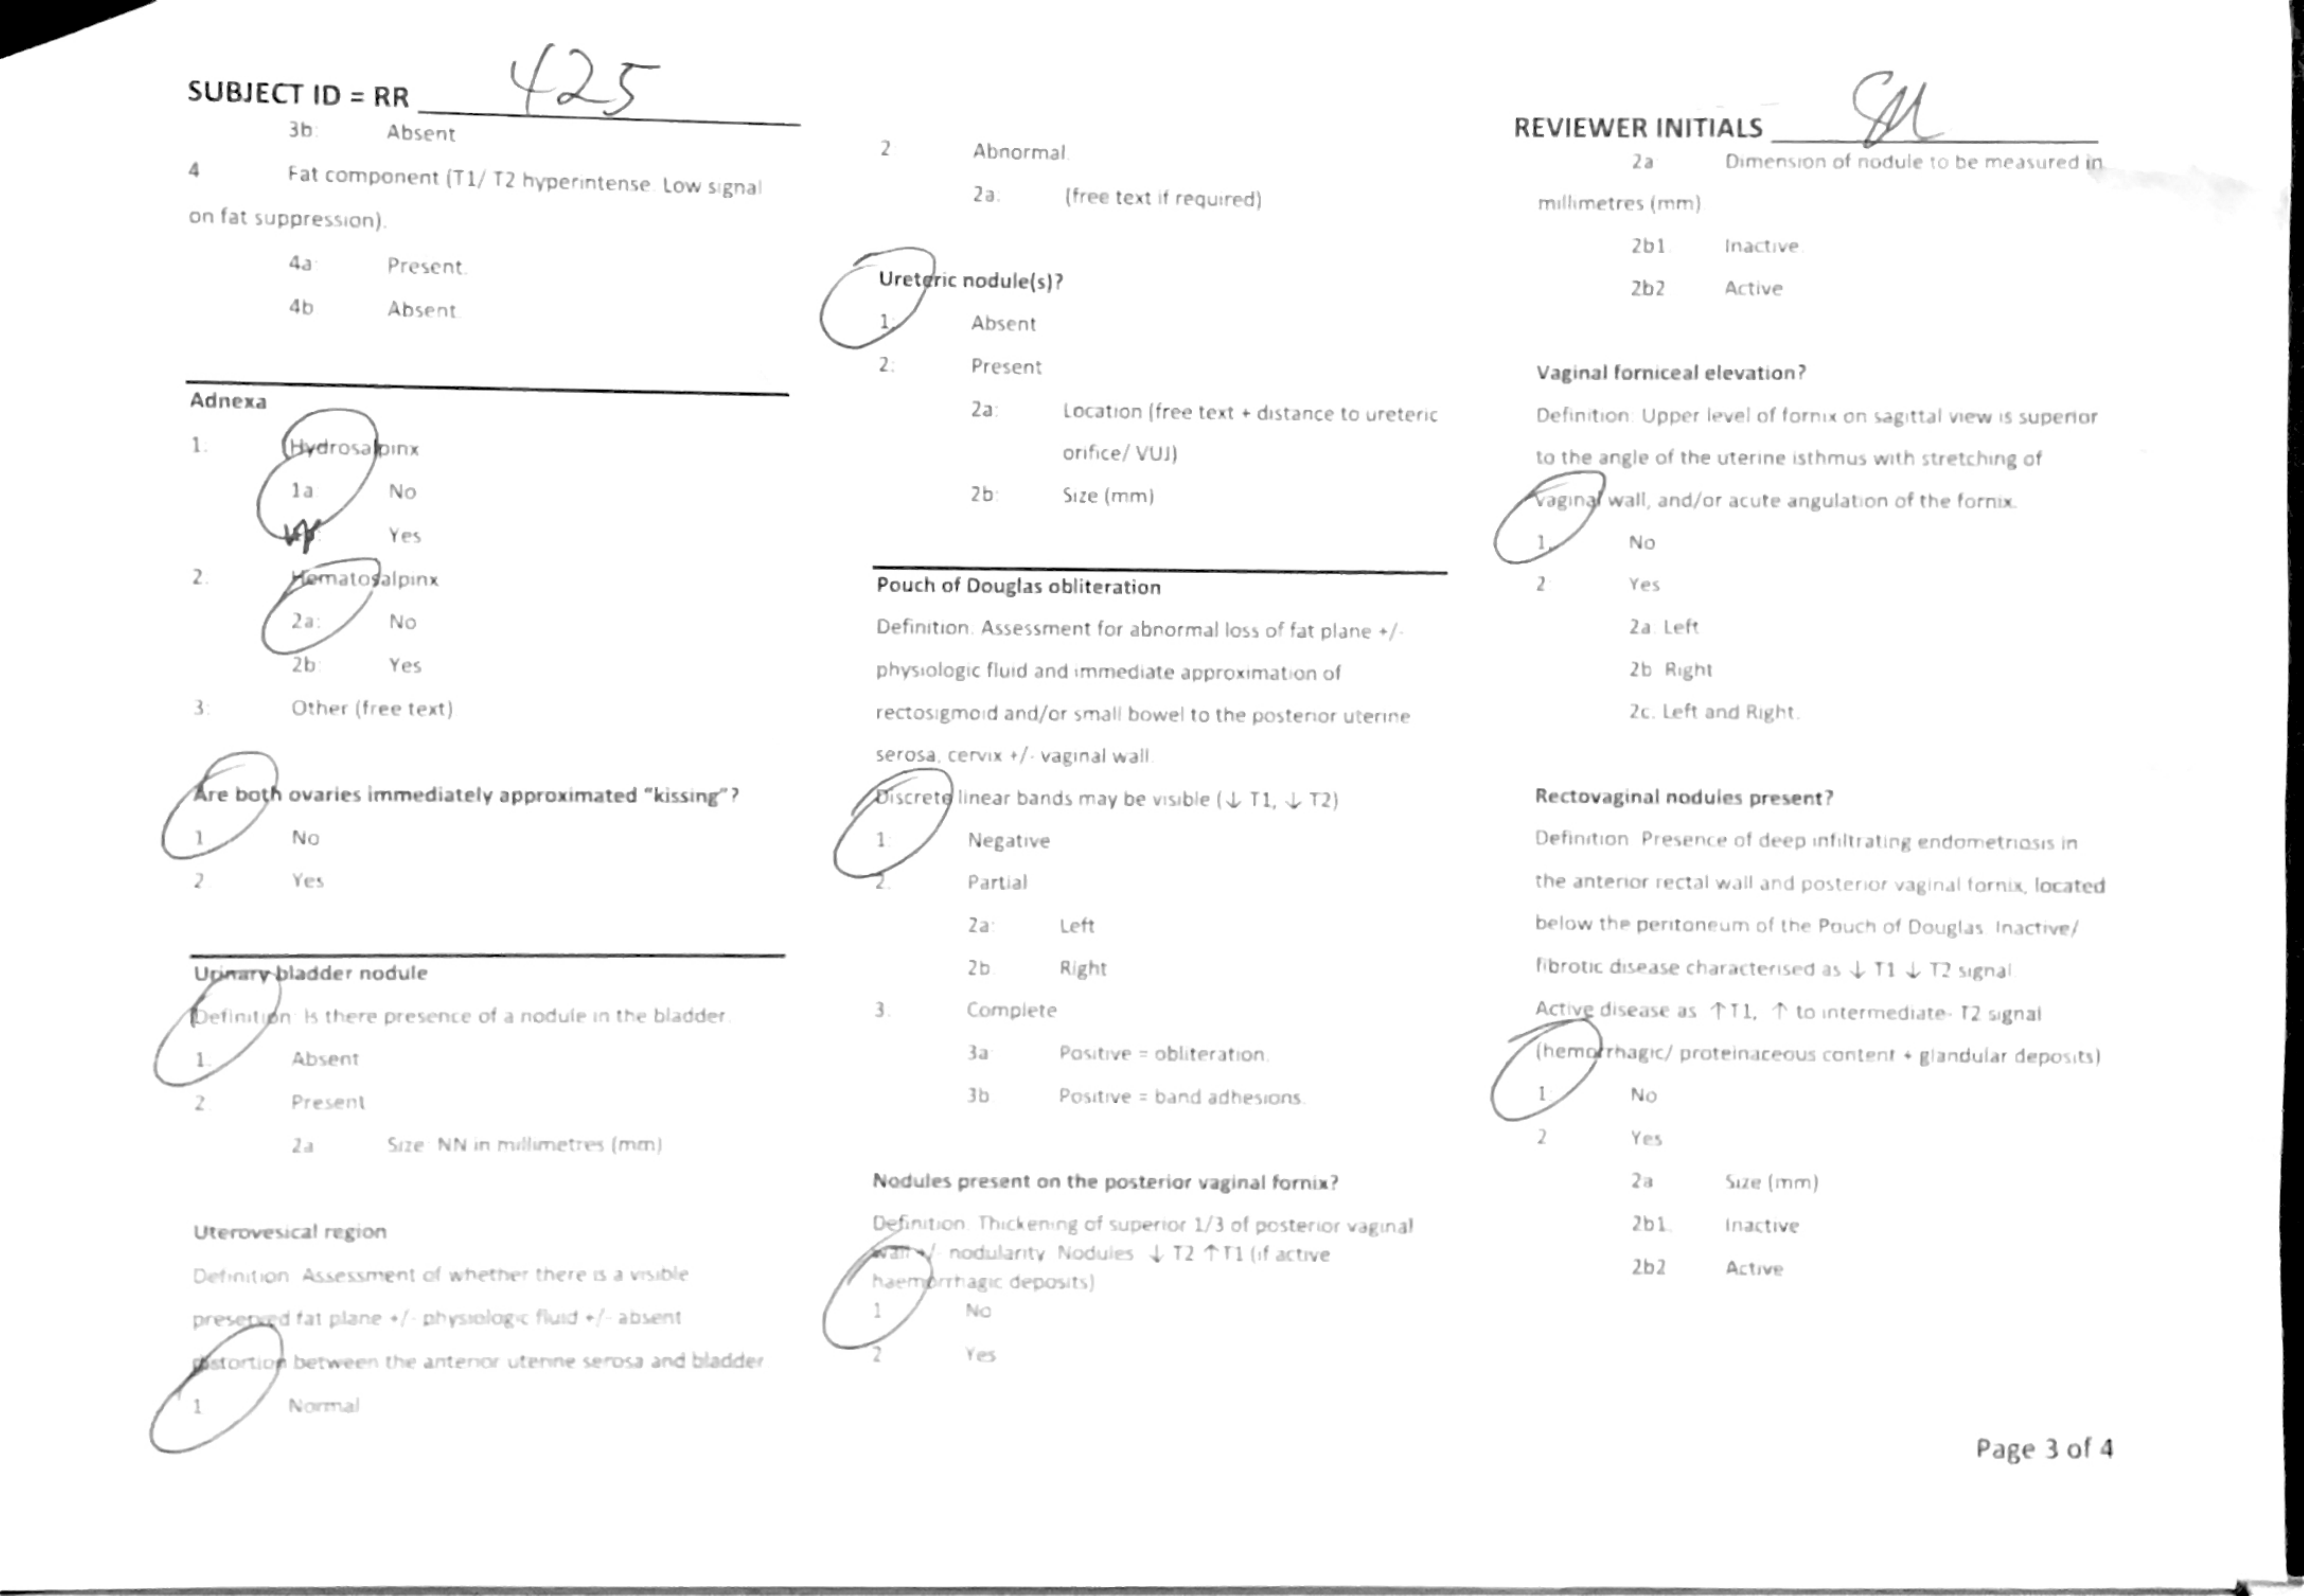 SUBJECT ID = RR 425
3b: Absent
4 Fat component (T1/ T2 hyperintense. Low signal
on fat suppression).
4a: Present.
4b Absent
Adnexa
1. Hydrosalpinx
1a No
Yes
2. Hematosalpinx
2a: No
2b: Yes
3: Other (free text)
Are both ovaries immediately approximated “kissing”?
1 No
2 Yes
Urinary bladder nodule
Definition Is there presence of a nodule in the bladder.
1. Absent
2. Present
2a Size NN in millimetres (mm)
Uterovesical region
Definition Assessment of whether there is a visible
preserved fat plane +/- physiologic fluid +/- absent
distortion between the anterior uterine serosa and bladder
1 Normal
2 Abnormal.
2a: (free text if required)
Ureteric nodule(s)?
1. Absent
2: Present
2a: Location (free text + distance to ureteric
orifice/ VUJ)
2b: Size (mm)
Pouch of Douglas obliteration
Definition. Assessment for abnormal loss of fat plane +/-
physiologic fluid and immediate approximation of
rectosigmoid and/or small bowel to the posterior uterine
serosa, cervix +/- vaginal wall.
Discrete linear bands may be visible (↓ T1, ↓ T2)
1: Negative
2. Partial
2a: Left
2b. Right
3. Complete
3a: Positive = obliteration.
3b Positive = band adhesions.
Nodules present on the posterior vaginal fornix?
Definition. Thickening of superior 1/3 of posterior vaginal
wall +/- nodularity Nodules ↓ T2 ↑T1 (if active
haemorrhagic deposits)
1 No
2 Yes
REVIEWER INITIALS SM
2a Dimension of nodule to be measured in
millimetres (mm)
2b1. Inactive.
2b2 Active
Vaginal forniceal elevation?
Definition: Upper level of fornix on sagittal view is superior
to the angle of the uterine isthmus with stretching of
vaginal wall, and/or acute angulation of the fornix.
1. No
2 Yes
2a. Left
2b Right
2c. Left and Right.
Rectovaginal nodules present?
Definition Presence of deep infiltrating endometriosis in
the anterior rectal wall and posterior vaginal fornix, located
below the peritoneum of the Pouch of Douglas. Inactive/
fibrotic disease characterised as ↓ T1 ↓ T2 signal
Active disease as ↑T1, ↑ to intermediate- T2 signal
(hemorrhagic/ proteinaceous content + glandular deposits)
1 No
2 Yes
2a Size (mm)
2b1. Inactive
2b2 Active
Page 3 of 4